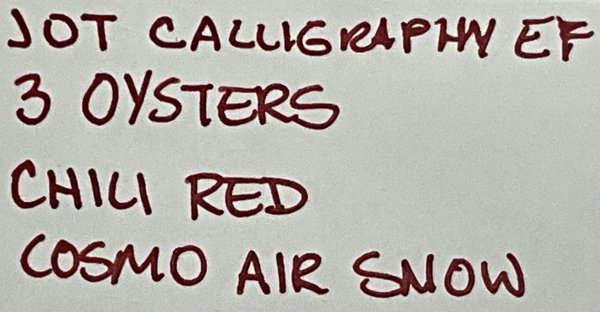 JOT CALLIGRAPHY EF
3 OYSTERS
CHILI RED
COSMO AIR SNOW